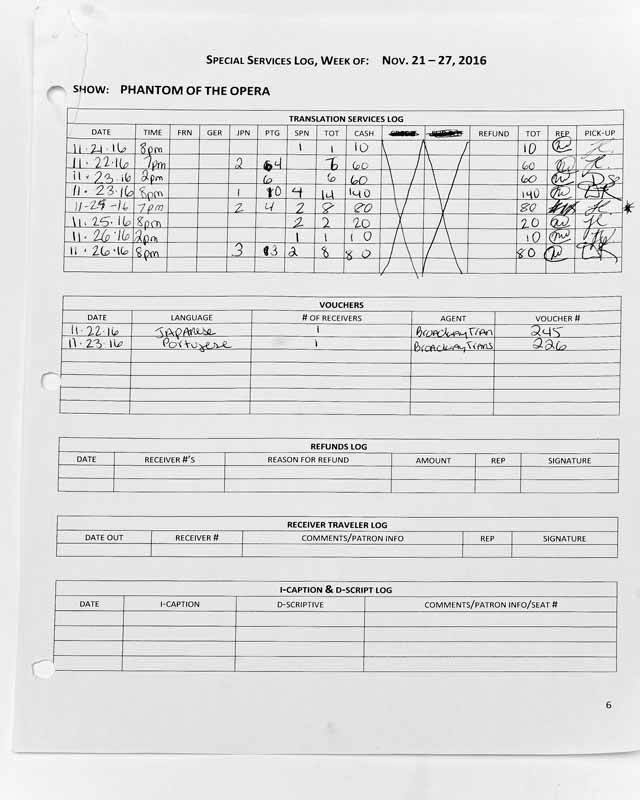 SPECIAL SERVICES LOG, WEEK OF: NOV. 21 – 27, 2016
SHOW: PHANTOM OF THE OPERA
TRANSLATION SERVICES LOG
DATE TIME FRN GER JPN PTG SPN TOT CASH REFUND TOT REP PICK-UP
11.21.16 8pm 1 1 10 10
11.22.16 7pm 2 4 6 60 60
11.23.16 2pm 6 6 60 60
11.23.16 8pm 1 10 4 14 140 140
11-25-16 7pm 2 4 2 8 80 80 *
11.25.16 8pm 2 2 20 20
11.26.16 2pm 1 1 10 10
11.26.16 8pm 3 3 2 8 80 80
VOUCHERS
DATE LANGUAGE # OF RECEIVERS AGENT VOUCHER #
11.22.16 JAPANESE 1 BROADWAYTRAN 245
11.23.16 PORTUGESE 1 BROADWAYTRANS 226
REFUNDS LOG
DATE RECEIVER #'S REASON FOR REFUND AMOUNT REP SIGNATURE
RECEIVER TRAVELER LOG
DATE OUT RECEIVER # COMMENTS/PATRON INFO REP SIGNATURE
I-CAPTION & D-SCRIPT LOG
DATE I-CAPTION D-SCRIPTIVE COMMENTS/PATRON INFO/SEAT #
6